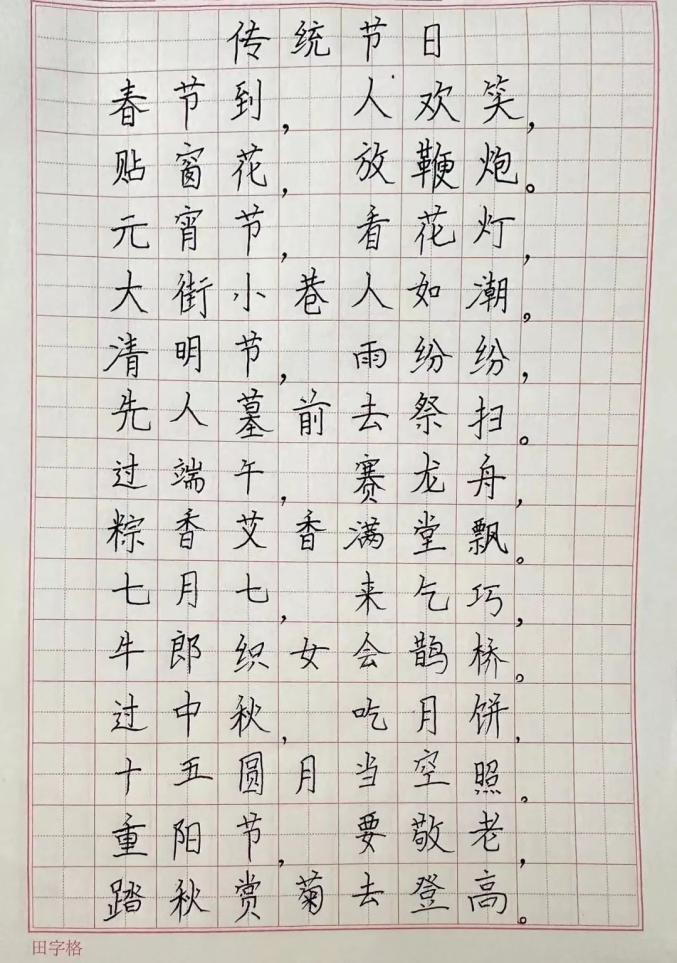 传统节日
春节到，人欢笑，
贴窗花，放鞭炮。
元宵节，看花灯，
大街小巷人如潮。
清明节，雨纷纷，
先人墓前去祭扫。
过端午，赛龙舟，
粽香艾香满堂飘。
七月七，来乞巧，
牛郎织女会鹊桥。
过中秋，吃月饼，
十五圆月当空照。
重阳节，要敬老，
踏秋赏菊去登高。
田字格